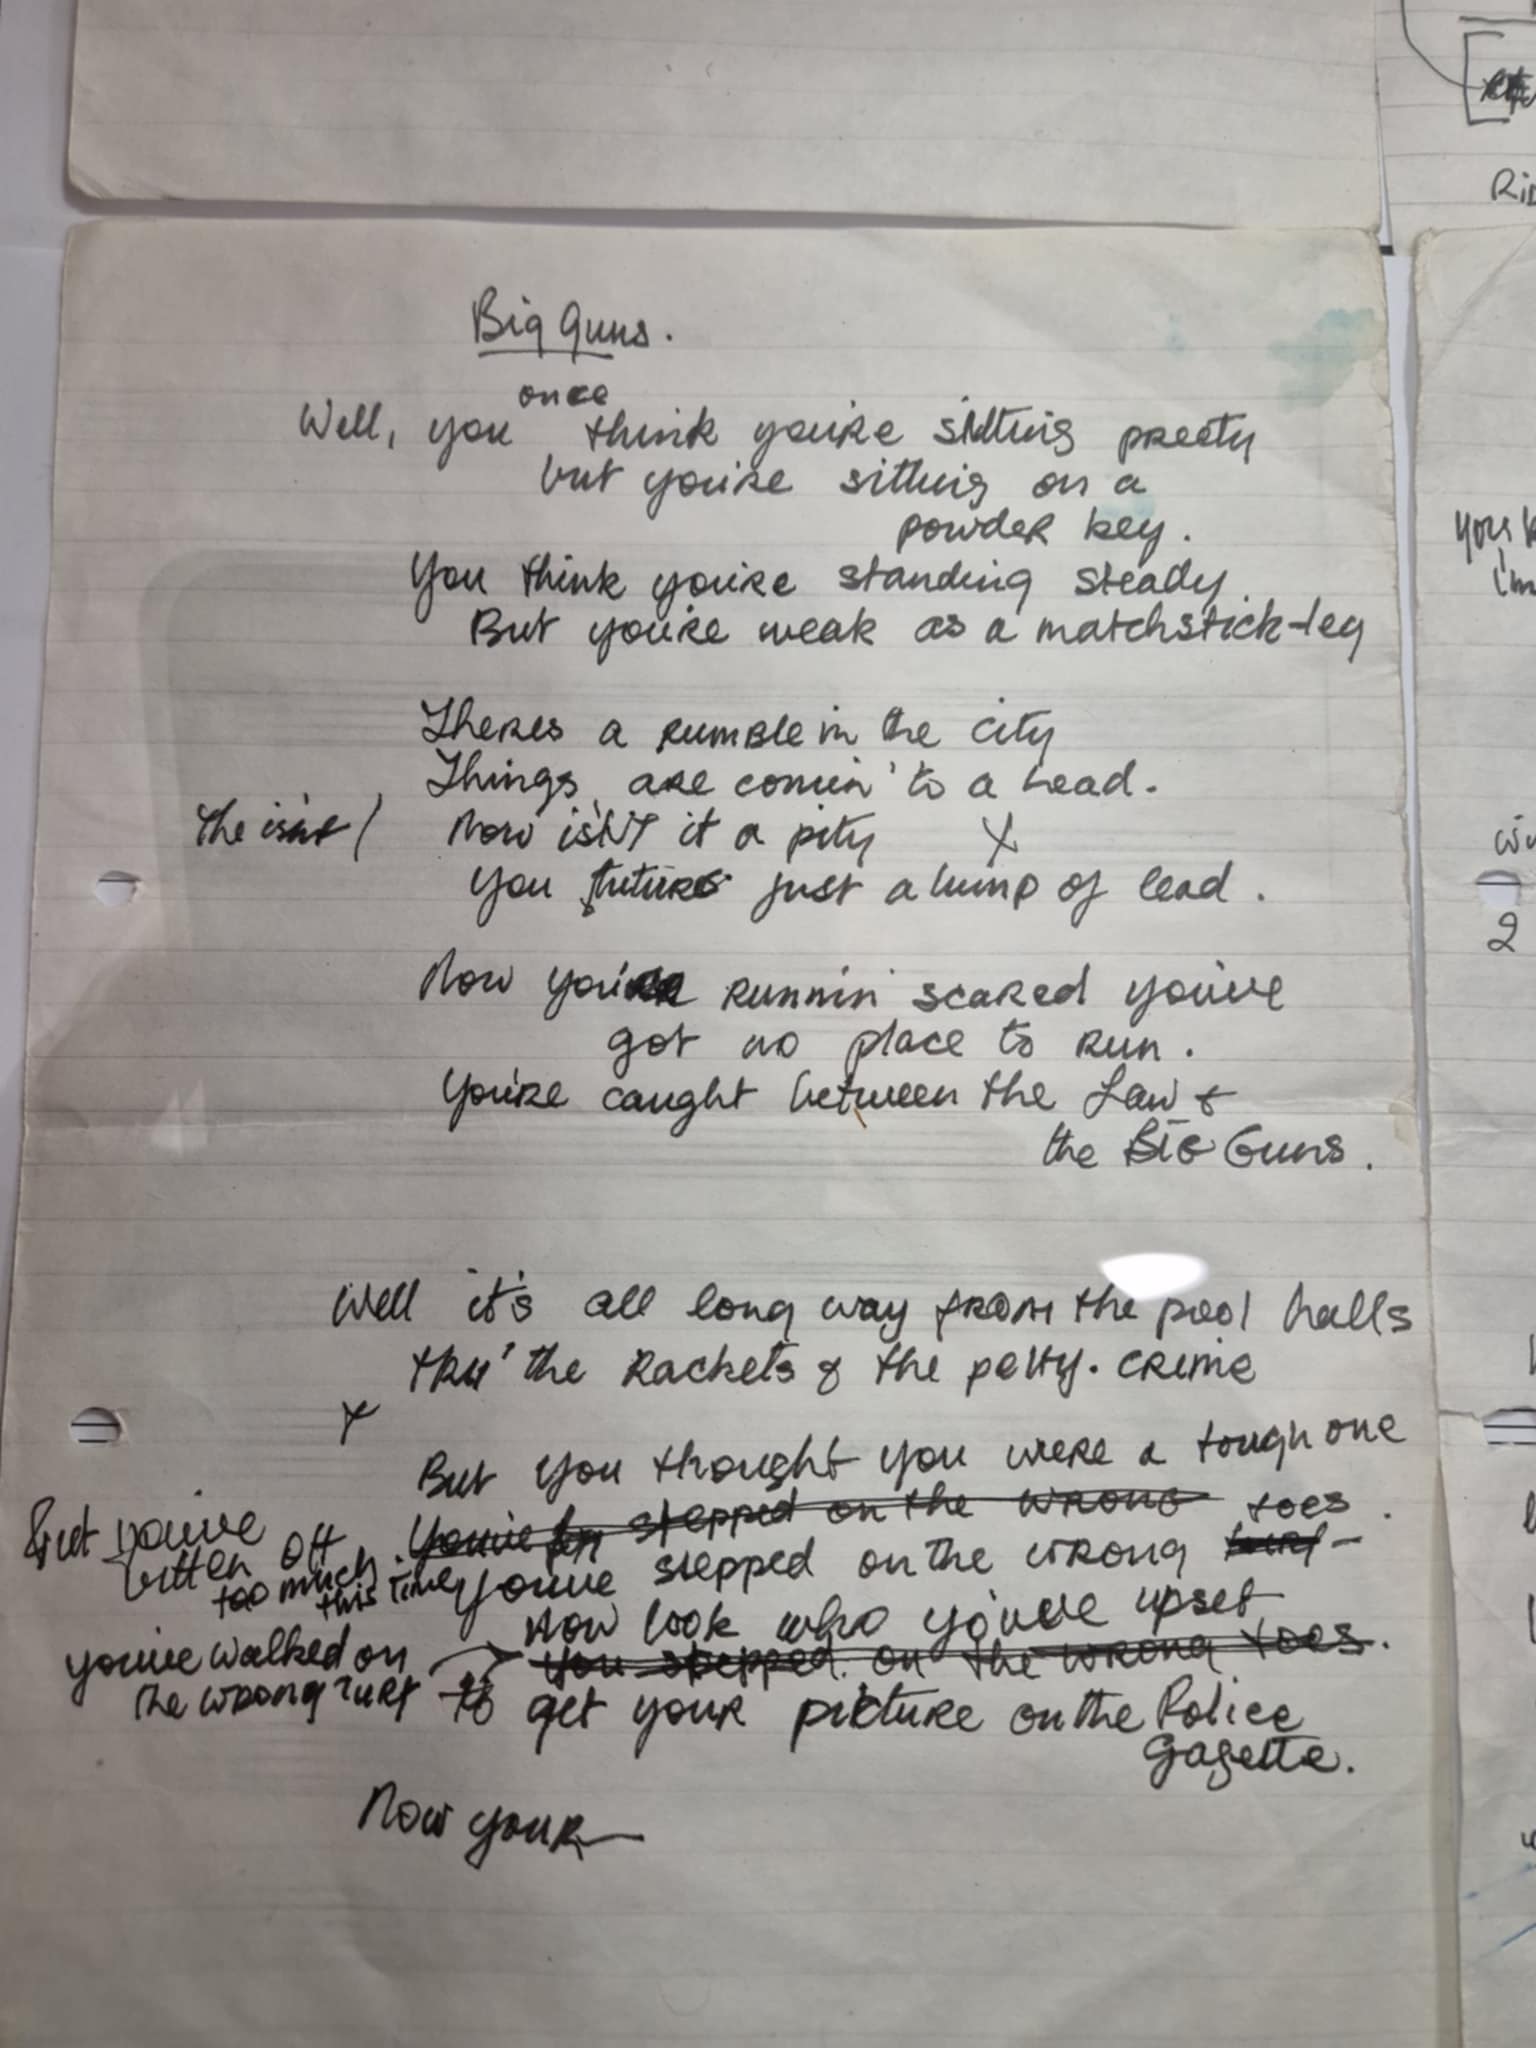 Big Guns.
once
Well, you think you're sitting preety
but you're sitting on a
powder key.
You think you're standing steady
But you're weak as a matchstick-leg
Theres a rumble in the city
Things are comin' to a head.
The isn't / Now isN't it a pity X
you future just a lump of lead.
Now you're runnin' scared you've
got no place to run.
You're caught between the Law &
the BIG Guns.
Well it's all long way from the pool halls
thru' the Rackets & the petty. crime
X
But you thought you were a tough one
You've stepped on the wrong toes.
But you've
bitten off
too much
this time
you've stepped on the wrong turf-
Now look who you've upset
you stepped on the wrong toes.
you've walked on
the wrong turf
to get your picture on the Police
Gazette.
Now your
Rid
2